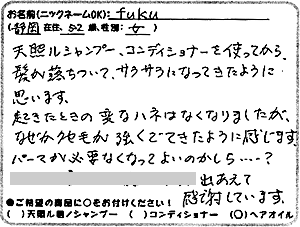 お名前(ニックネームOK): fuku
(静岡)在住、(52)歳、性別:(女)
天照ルシャンプー、コンディショナーを使ってから
髪が落ちついて、サラサラになってきたように
思います。
起きたときの変なハネはなくなりましたが、
なぜかクセ毛が強くでてきたように感じます。
パーマが必要なくなってよいのかしら‥‥?
出あえて
感謝しています。
●ご希望の商品に○をお付けください!
( )天照ル朝ノシャンプー ( )コンディショナー (○)ヘアオイル